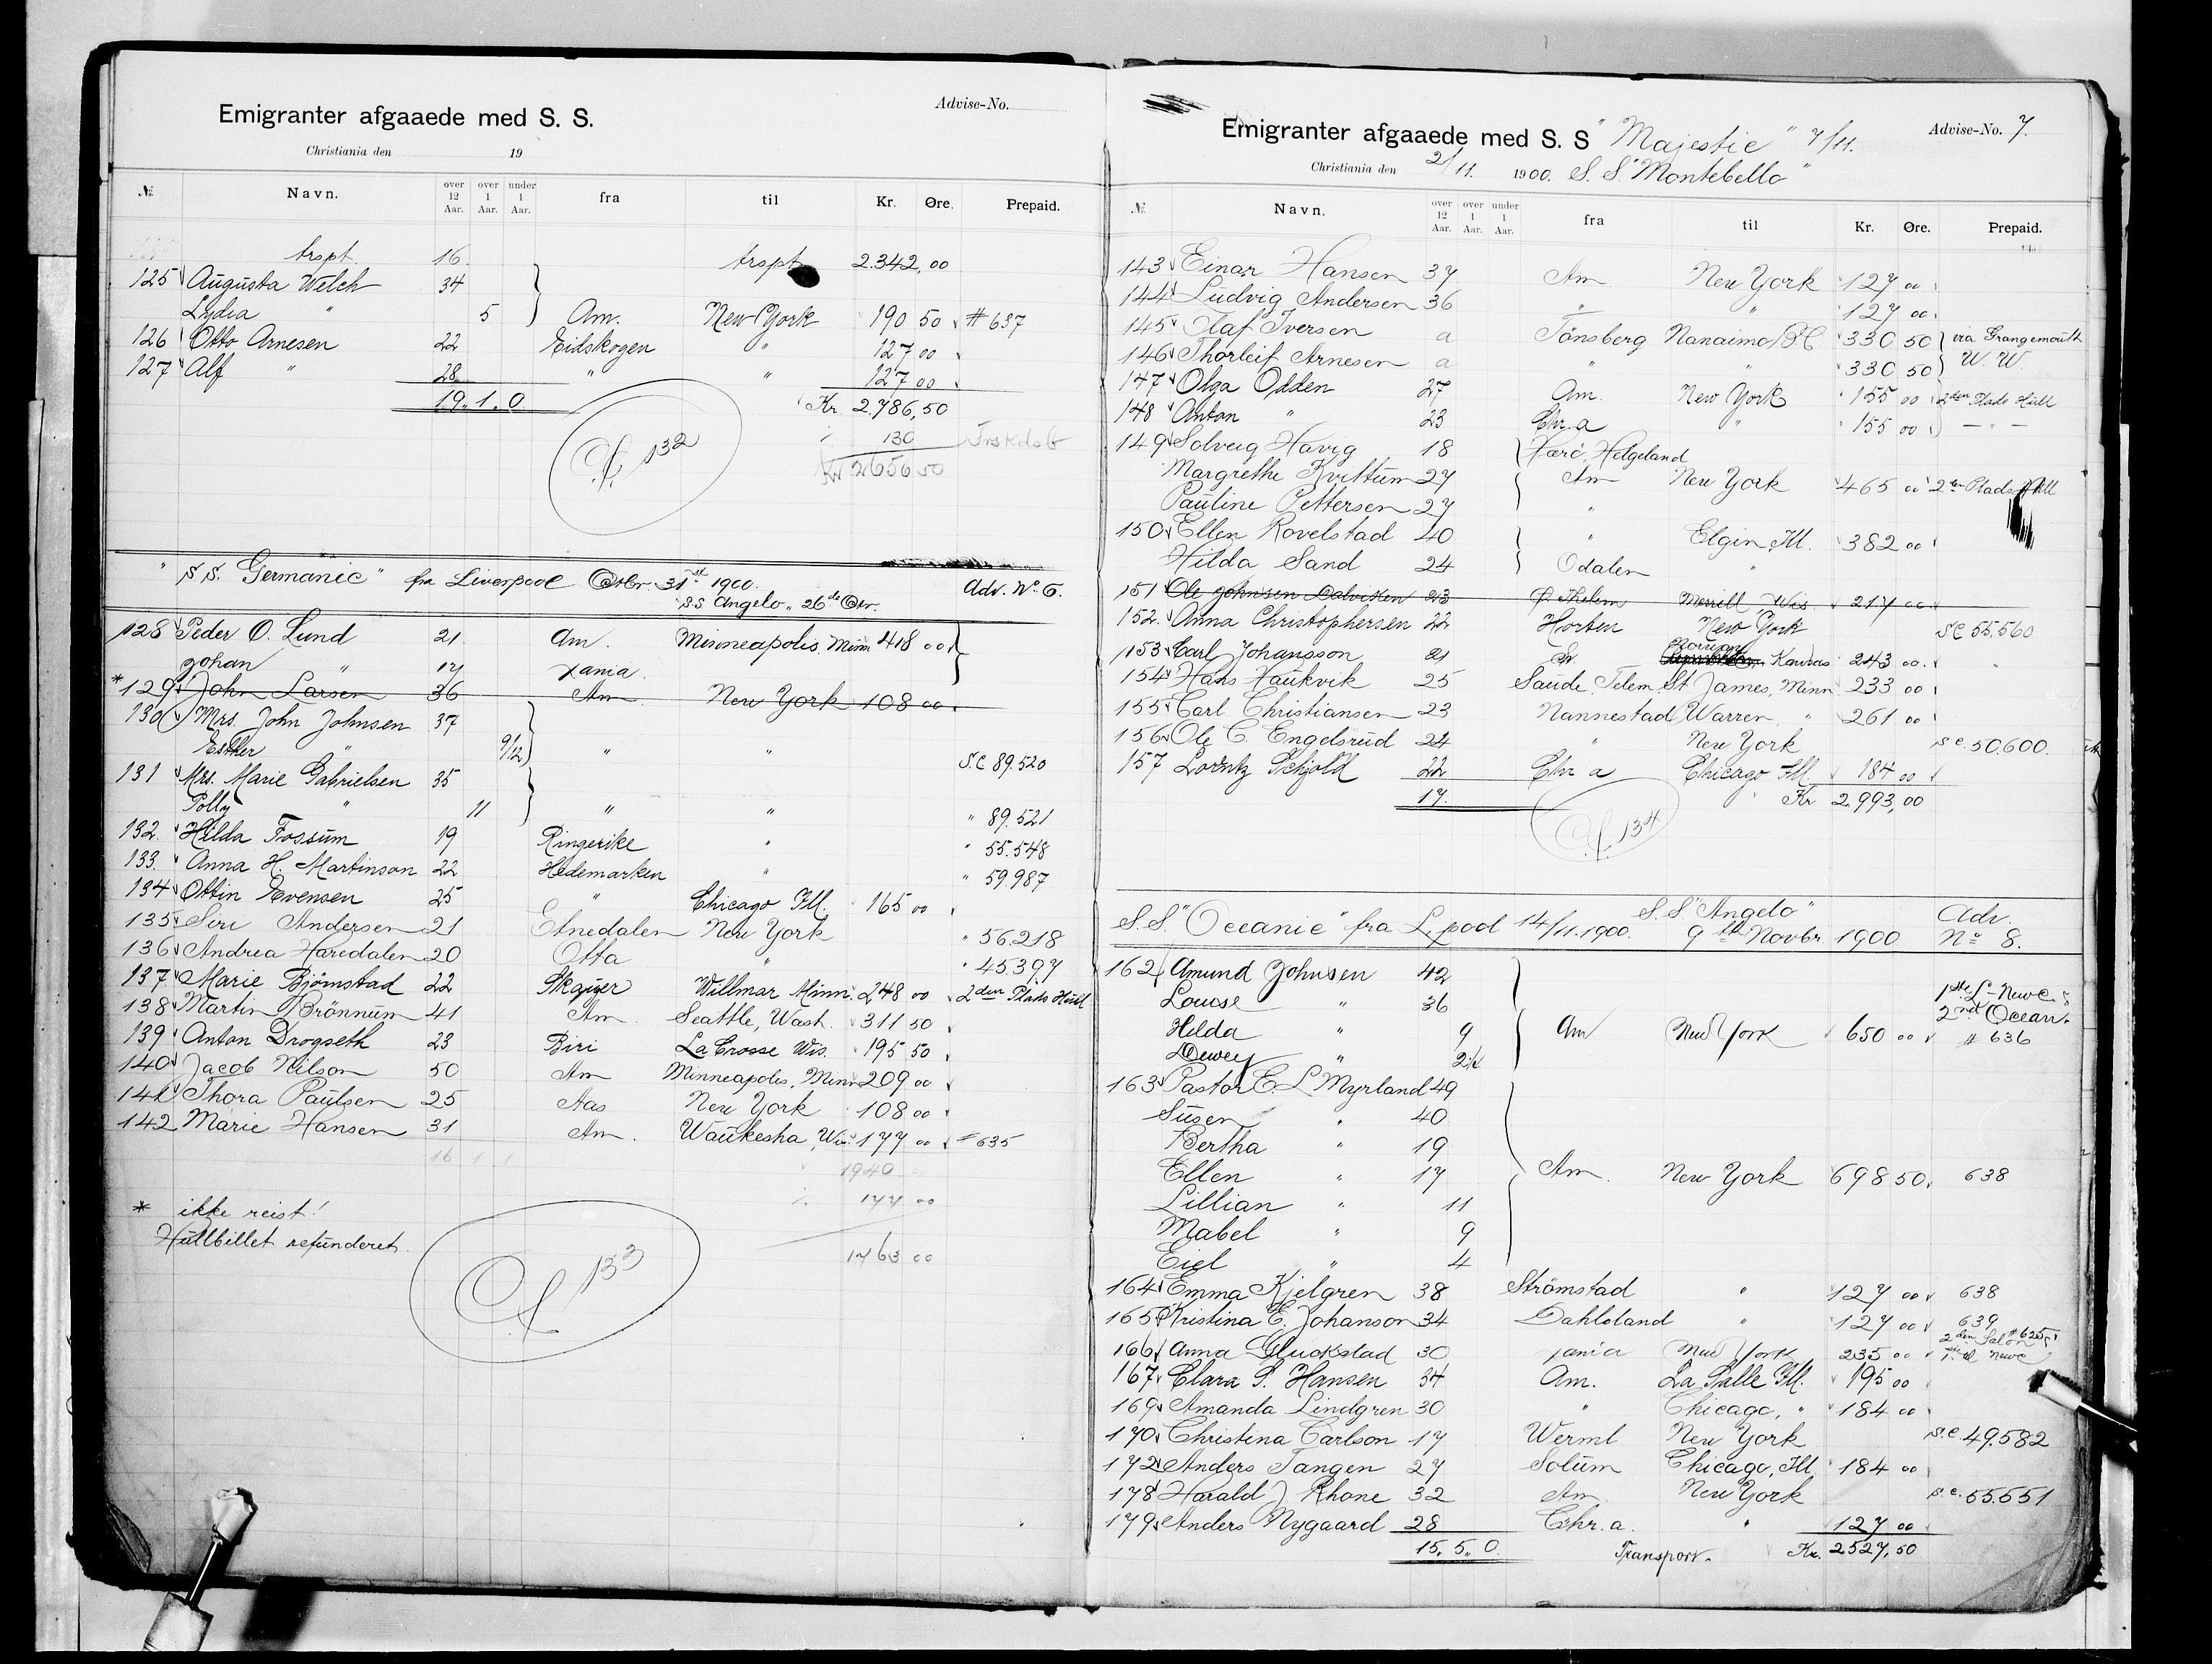 Emigranter afgaaede med S. S.
Advise-No.
Christiania den 19
№ Navn. over 12 Aar. over 1 Aar. under 1 Aar. fra til Kr. Øre. Prepaid.
trspt. 16 trspt 2.342,00
125 Augusta Welch 34
Lydia " 5 Am. New York 190 50 # 637
126 Otto Arnesen 22 Eidskogen " 127 00
127 Alf " 28 " " 127 00
19. 1. 0. Kr. 2.786,50
130
132 Kr 2656 50
" S.S. Germanic" fra Liverpool Octbr. 31st 1900. Adv. No. 6.
"S.S Angelo" 26de Octr.
128 Peder O. Lund 21 Am. Minneapolis, Minn 418 00
Johan " 17 Xania.
* 129 John Larsen 36 Am New York 108 00
130 Mrs. John Johnsen 37
Esther " 9/12 " " S.C 89.520
131 Mrs. Marie Gabrielsen 35
Polly " 11 " " " 89.521
132. Hilda Fossum 19 Ringerike " " 55.548
133. Anna H. Martinson 22 Hedemarken " " 59.987
134 Ottin Evensen 25 " Chicago Ill. 165 00
135 Siri Andersen 21 Etnedalen New York " 56.218
136 Andrea Haredalen 20 Otta " " 45397
137 Marie Bjørnstad 22 Skajer Willmar Minn. 248 00 2den Plads Hull
138 Martin Brønnum 41 Am Seattle, Wash. 311 50
139 Anton Drogseth 23 Biri La Crosse Wis. 195 50
140 Jacob Nilson 50 Am Minneapolis, Minn 209 00
141 Thora Paulsen 25 Aas New York 108 00
142 Marie Hansen 31 Am. Waukesha, Wis. 177 00 # 635
16 1 1 1940
177 00
* ikke reist!
Hullbillet refunderet.
1763 00
133
Emigranter afgaaede med S. S "Majestic" 7/11. Advise-No. 7.
Christiania den 2/11. 1900. S. S. "Montebello"
№ Navn. over 12 Aar. over 1 Aar. under 1 Aar. fra til Kr. Øre. Prepaid.
143 Einar Hansen 37 Am New York 127 00
144 Ludvig Andersen 36 " " 127 00
145 Olaf Iversen a Tønsberg Nanaimo B.C 330 50 via Grangemouth
146 Thorleif Arnesen a " " 330 50 W. W.
147 Olga Odden 27 Am. New York 155 00 2den Plads Hull
148 Anton " 23 Chr.a " 155 00 — " —
149 Solveig Havig 18 Herö, Helgeland
Margrethe Kvittum 27 Am New York 465 00 2den Plads Hull
Pauline Pettersen 27 "
150 Ellen Rovelstad 40 " Elgin, Ill. 382 00
Hilda Sand 24 Odalen "
151 Ole Johnsen Dalviken 23 Ø. Thelem Merrill, Wis. 217 00
152. Anna Christophersen 22 Horten New York S.C 55.560
153 Carl Johansson 21 Sv. Kansas 243 00
154 Hans Haukvik 25 Saude, Telem. St. James, Minn 233 00
155 Carl Christiansen 23 Nannestad Warren, " 261 00
156 Ole C. Engelsrud 24 " New York S.C. 50.600.
157 Lorentz Schjold 22 Chr a Chicago Ill. 184 00
17. Kr 2.993,00
134
S.S. "Oceanic" fra L.pool 14/11.1900. S.S. "Angelo" 9th Novbr. 1900 Adv. No 8.
162 Amund Johnsen 42
Louise " 36 1ste L-Newc. & 2nd Ocean.
Hilda " 9 Am New York 650 00 # 636
Dewey " 2½
163 Pastor E. L Myrland 49
Susen " 40
Bertha " 19
Ellen " 17 Am. New York 698 50. 638
Lillian " 11
Mabel " 9
Eiel " 4
164 Emma Kjelgren 38 Strömstad " 127 00 638
165 Kristina E. Johanson 34 Dahlsland " 127 00 639
166 Anna Gluckstad 30 Xania New York 235 00 2den Salon # 625
167 Clara S. Hansen 34 Am. La Salle Ill. 195 00
169 Amanda Lindgren 30 " Chicago, " 184 00
170 Christina Carlson 17 Werml New York S.C. 49.582
172 Anders Tangen 27 Solum Chicago, Ill, 184 00
178 Harald J Rhone 32 Am New York S.C. 55.551
179 Anders Nygaard 28 Chr.a. " 127 00
15. 5. 0. Transport. Kr. 2527,50